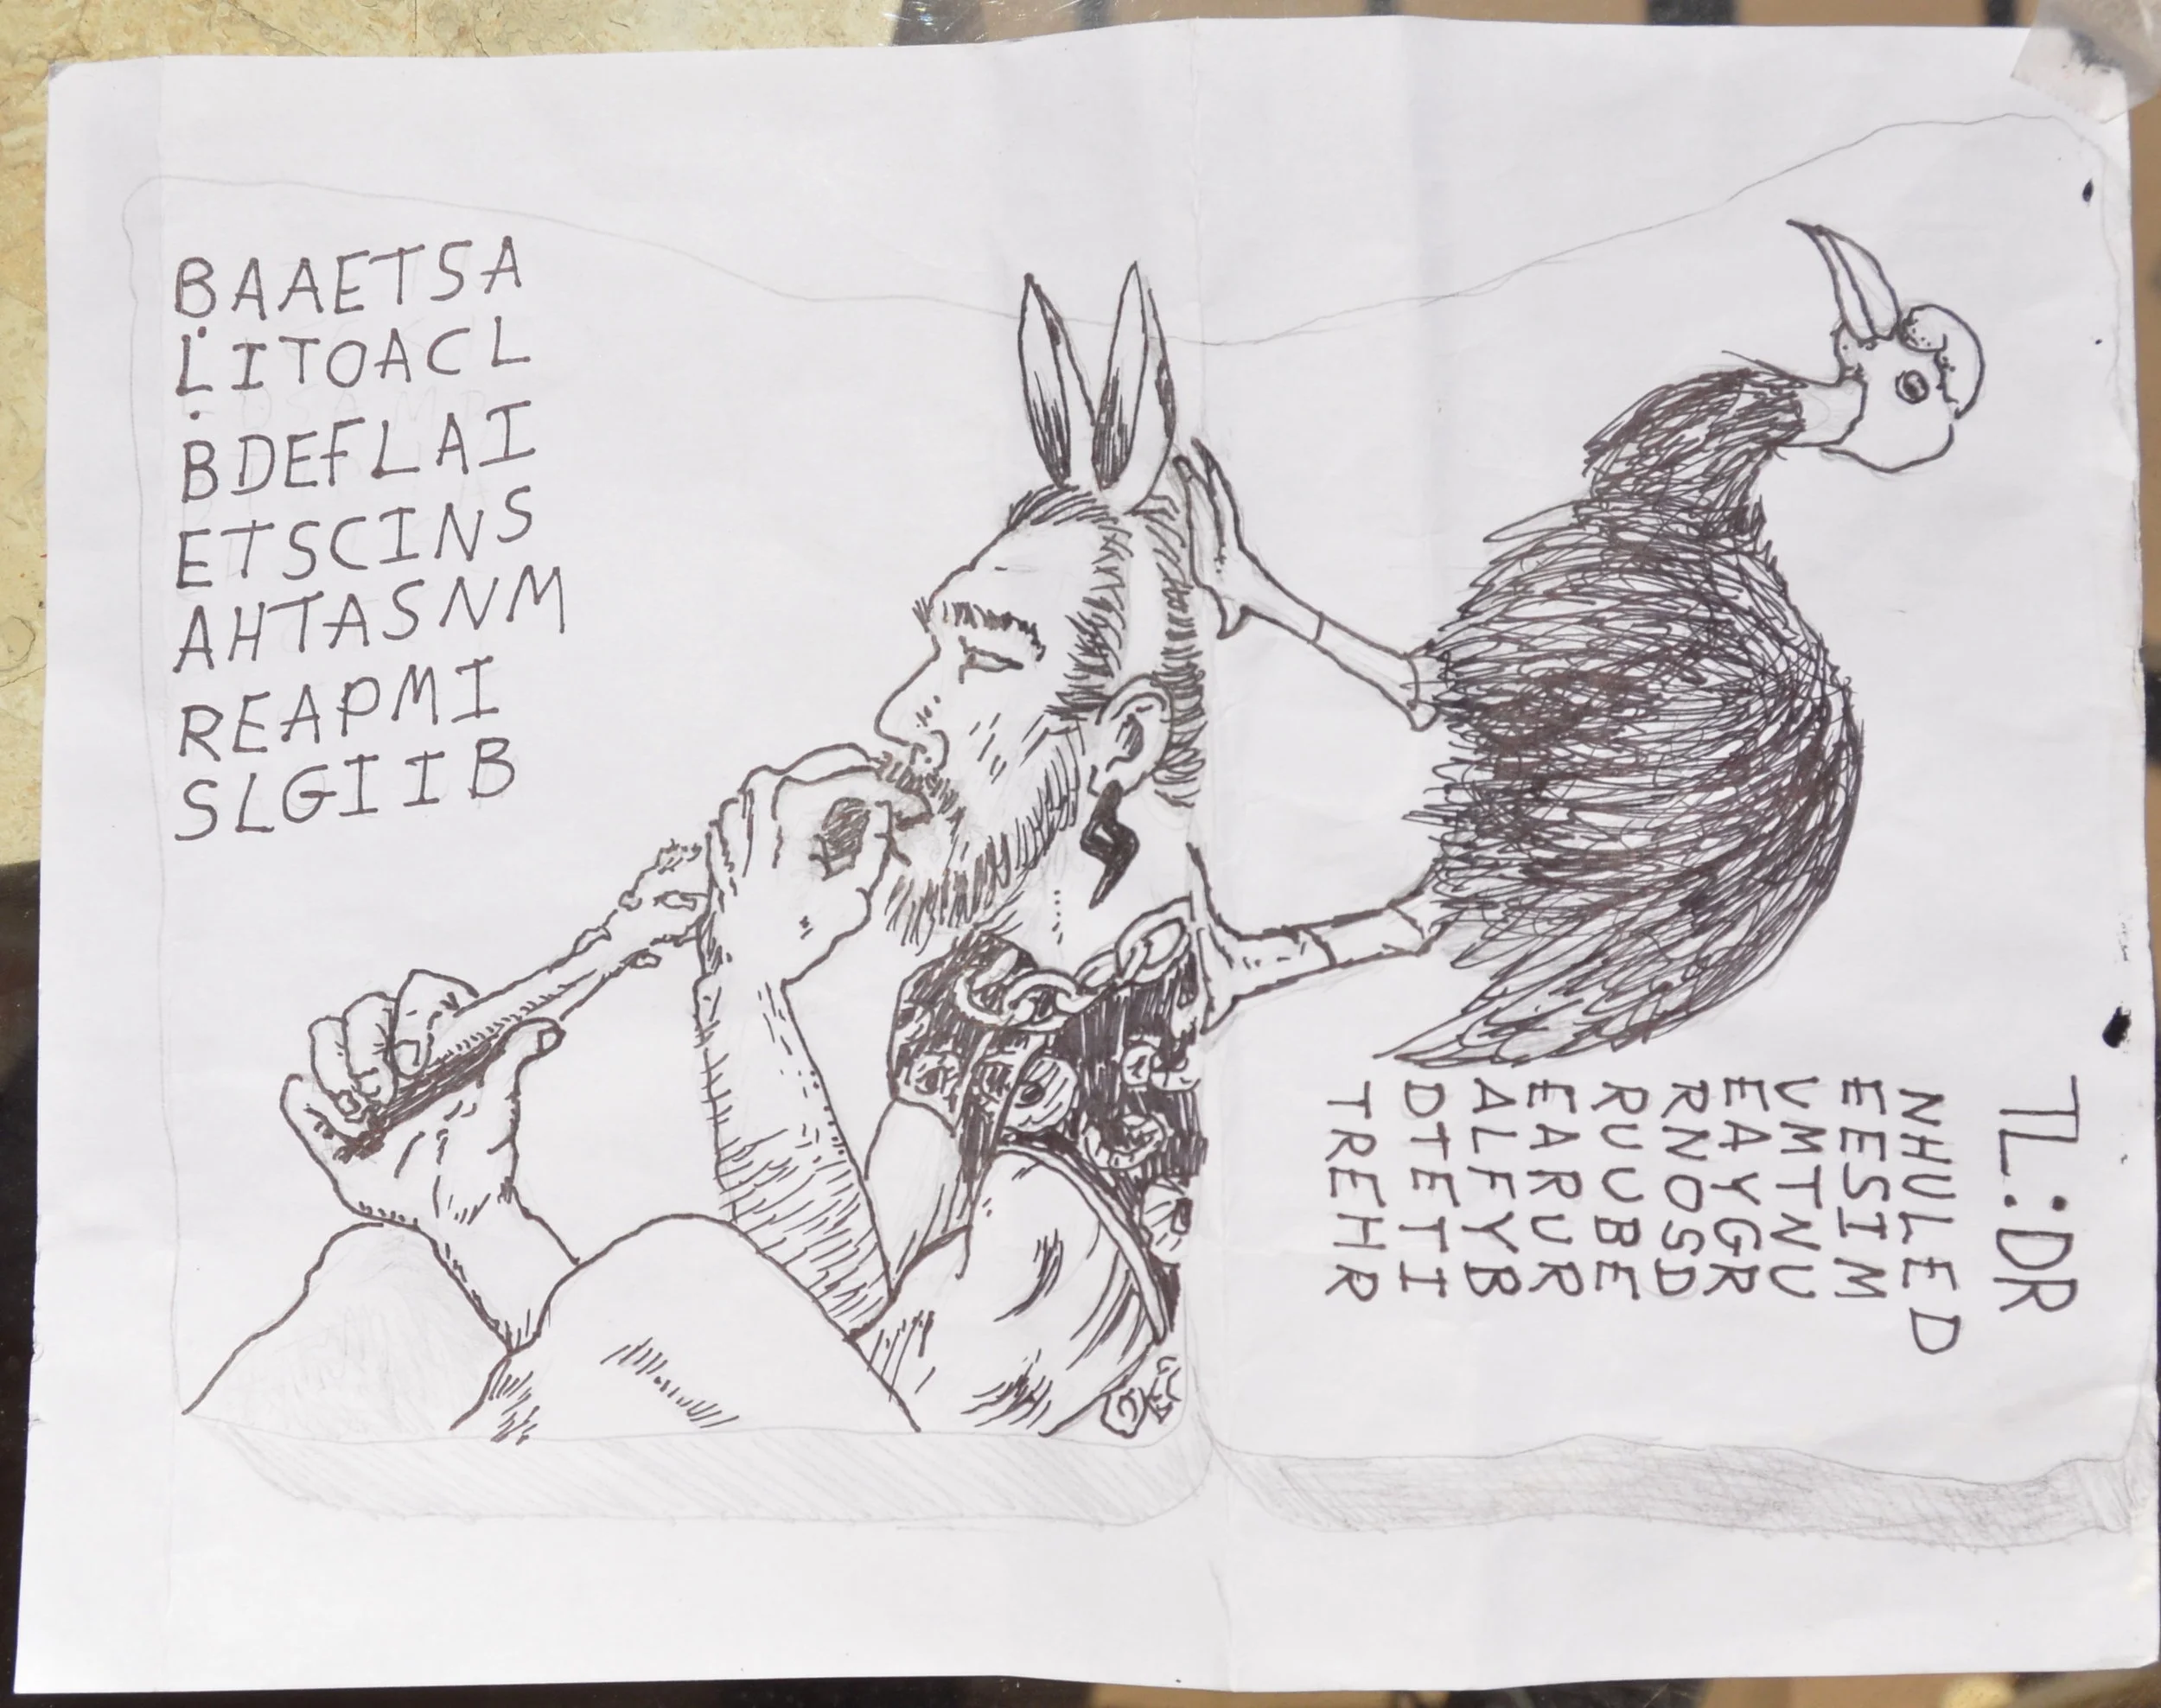 BAAETSA
LITOACL
BDEFLAI
ETSCINS
AHTASNM
REAPMI
SLGIIB
TL:DR
NHULED
EESIM
VMTNU
EAYGR
RNOSD
RUUBE
EARUR
ALFYB
DTETI
TREHR